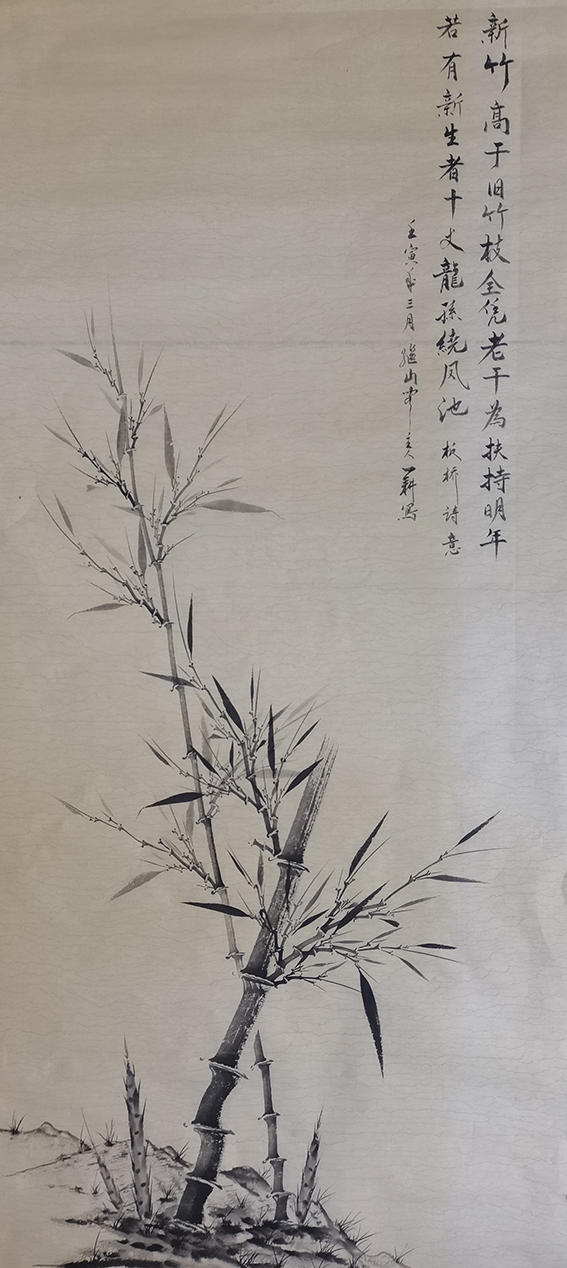 新竹高于旧竹枝全凭老干為扶持明年
若有新生者十丈龍孫繞凤池 板桥詩意
壬寅年三月 山 主人 写